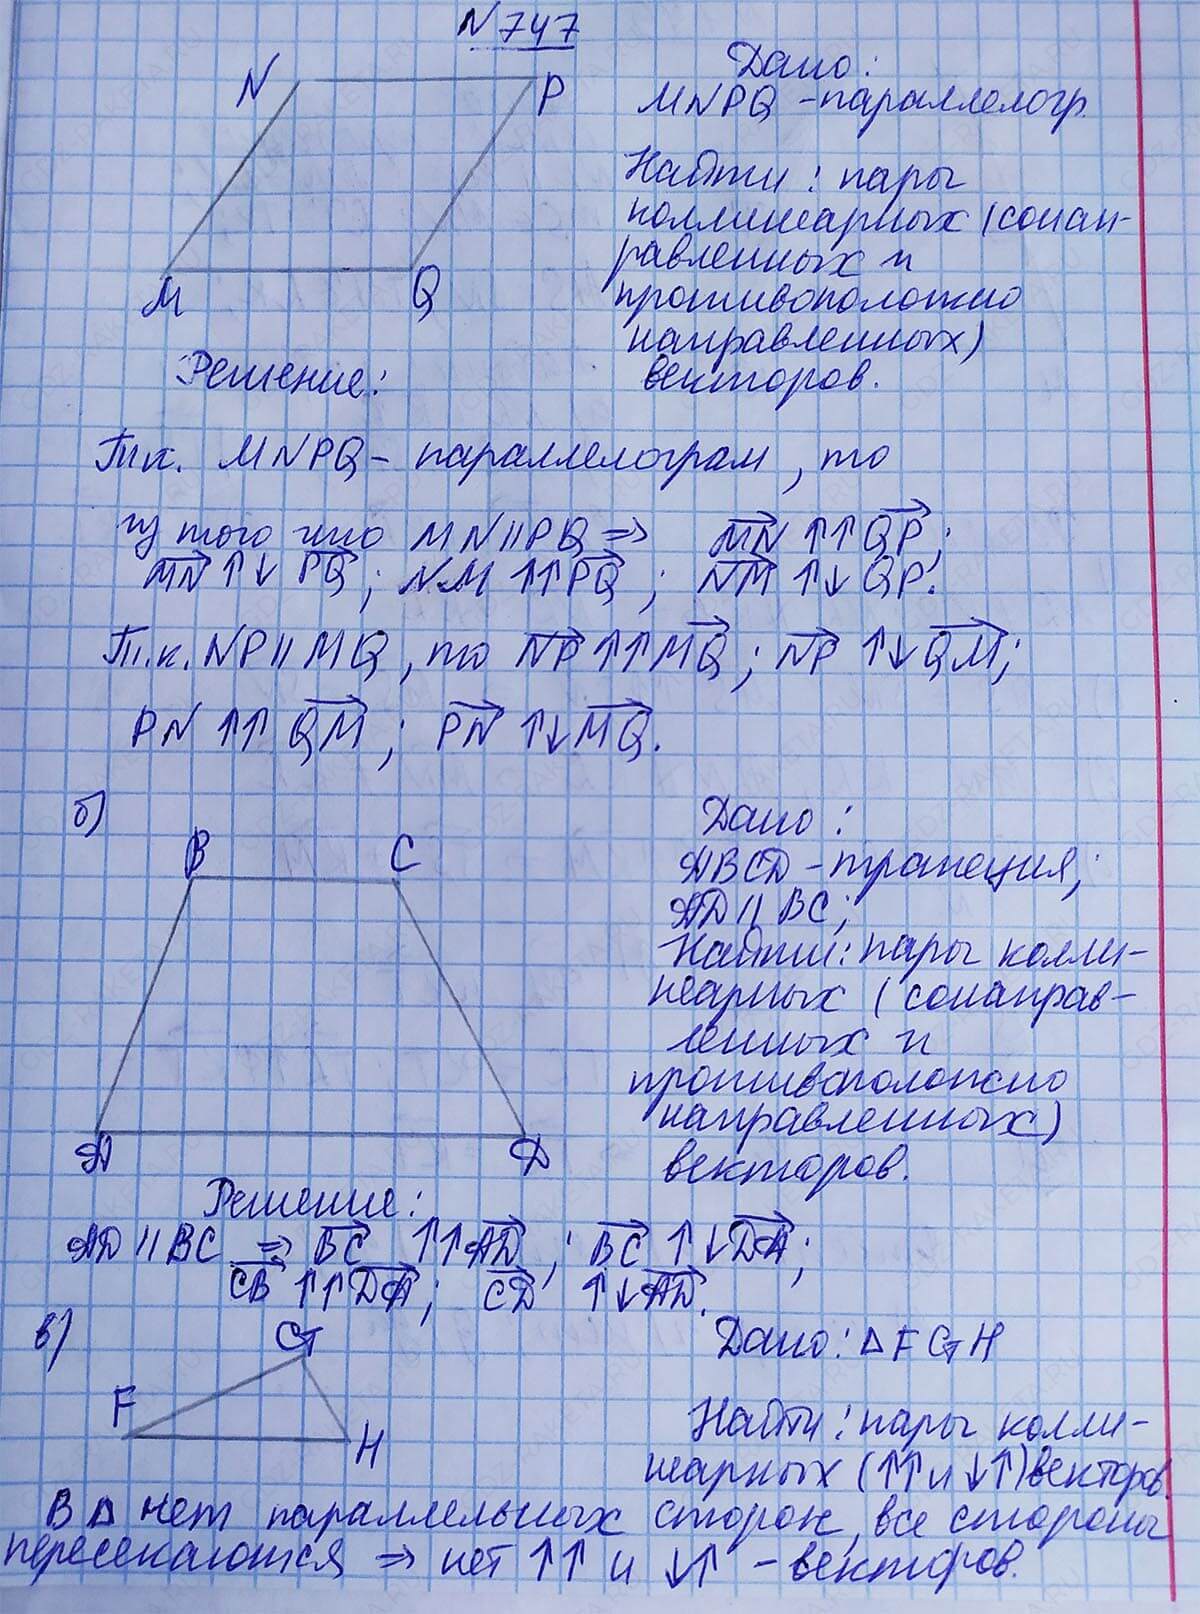 N 747
N
P
M
Q
Дано:
MNPQ - параллелогр.
Найти: пары
коллинеарных (сонап-
равленных и
противоположно
направленных)
векторов.
Решение:
Т.к. MNPQ - параллелограм, то
из того что MN || PQ ⇒ MN ↑↑ QP;
MN ↑↓ PQ; NM ↑↑ PQ; NM ↑↓ QP.
Т.к. NP || MQ, то NP ↑↑ MQ; NP ↑↓ QM;
PN ↑↑ QM; PN ↑↓ MQ.
б)
B
C
A
D
Дано:
ABCD - трапеция;
AD || BC;
Найти: пары колли-
неарных (сонаправ-
ленных и
противоположно
направленных)
векторов.
Решение:
AD || BC ⇒ BC ↑↑ AD; BC ↑↓ DA;
CB ↑↑ DA; CD ↑↓ AD.
в)
G
F
H
Дано: Δ FGH
Найти: пары колли-
неарных (↑↑ и ↓↑) векторов.
В Δ нет параллельных сторон, все стороны
пересекаются ⇒ нет ↑↑ и ↓↑ - векторов.